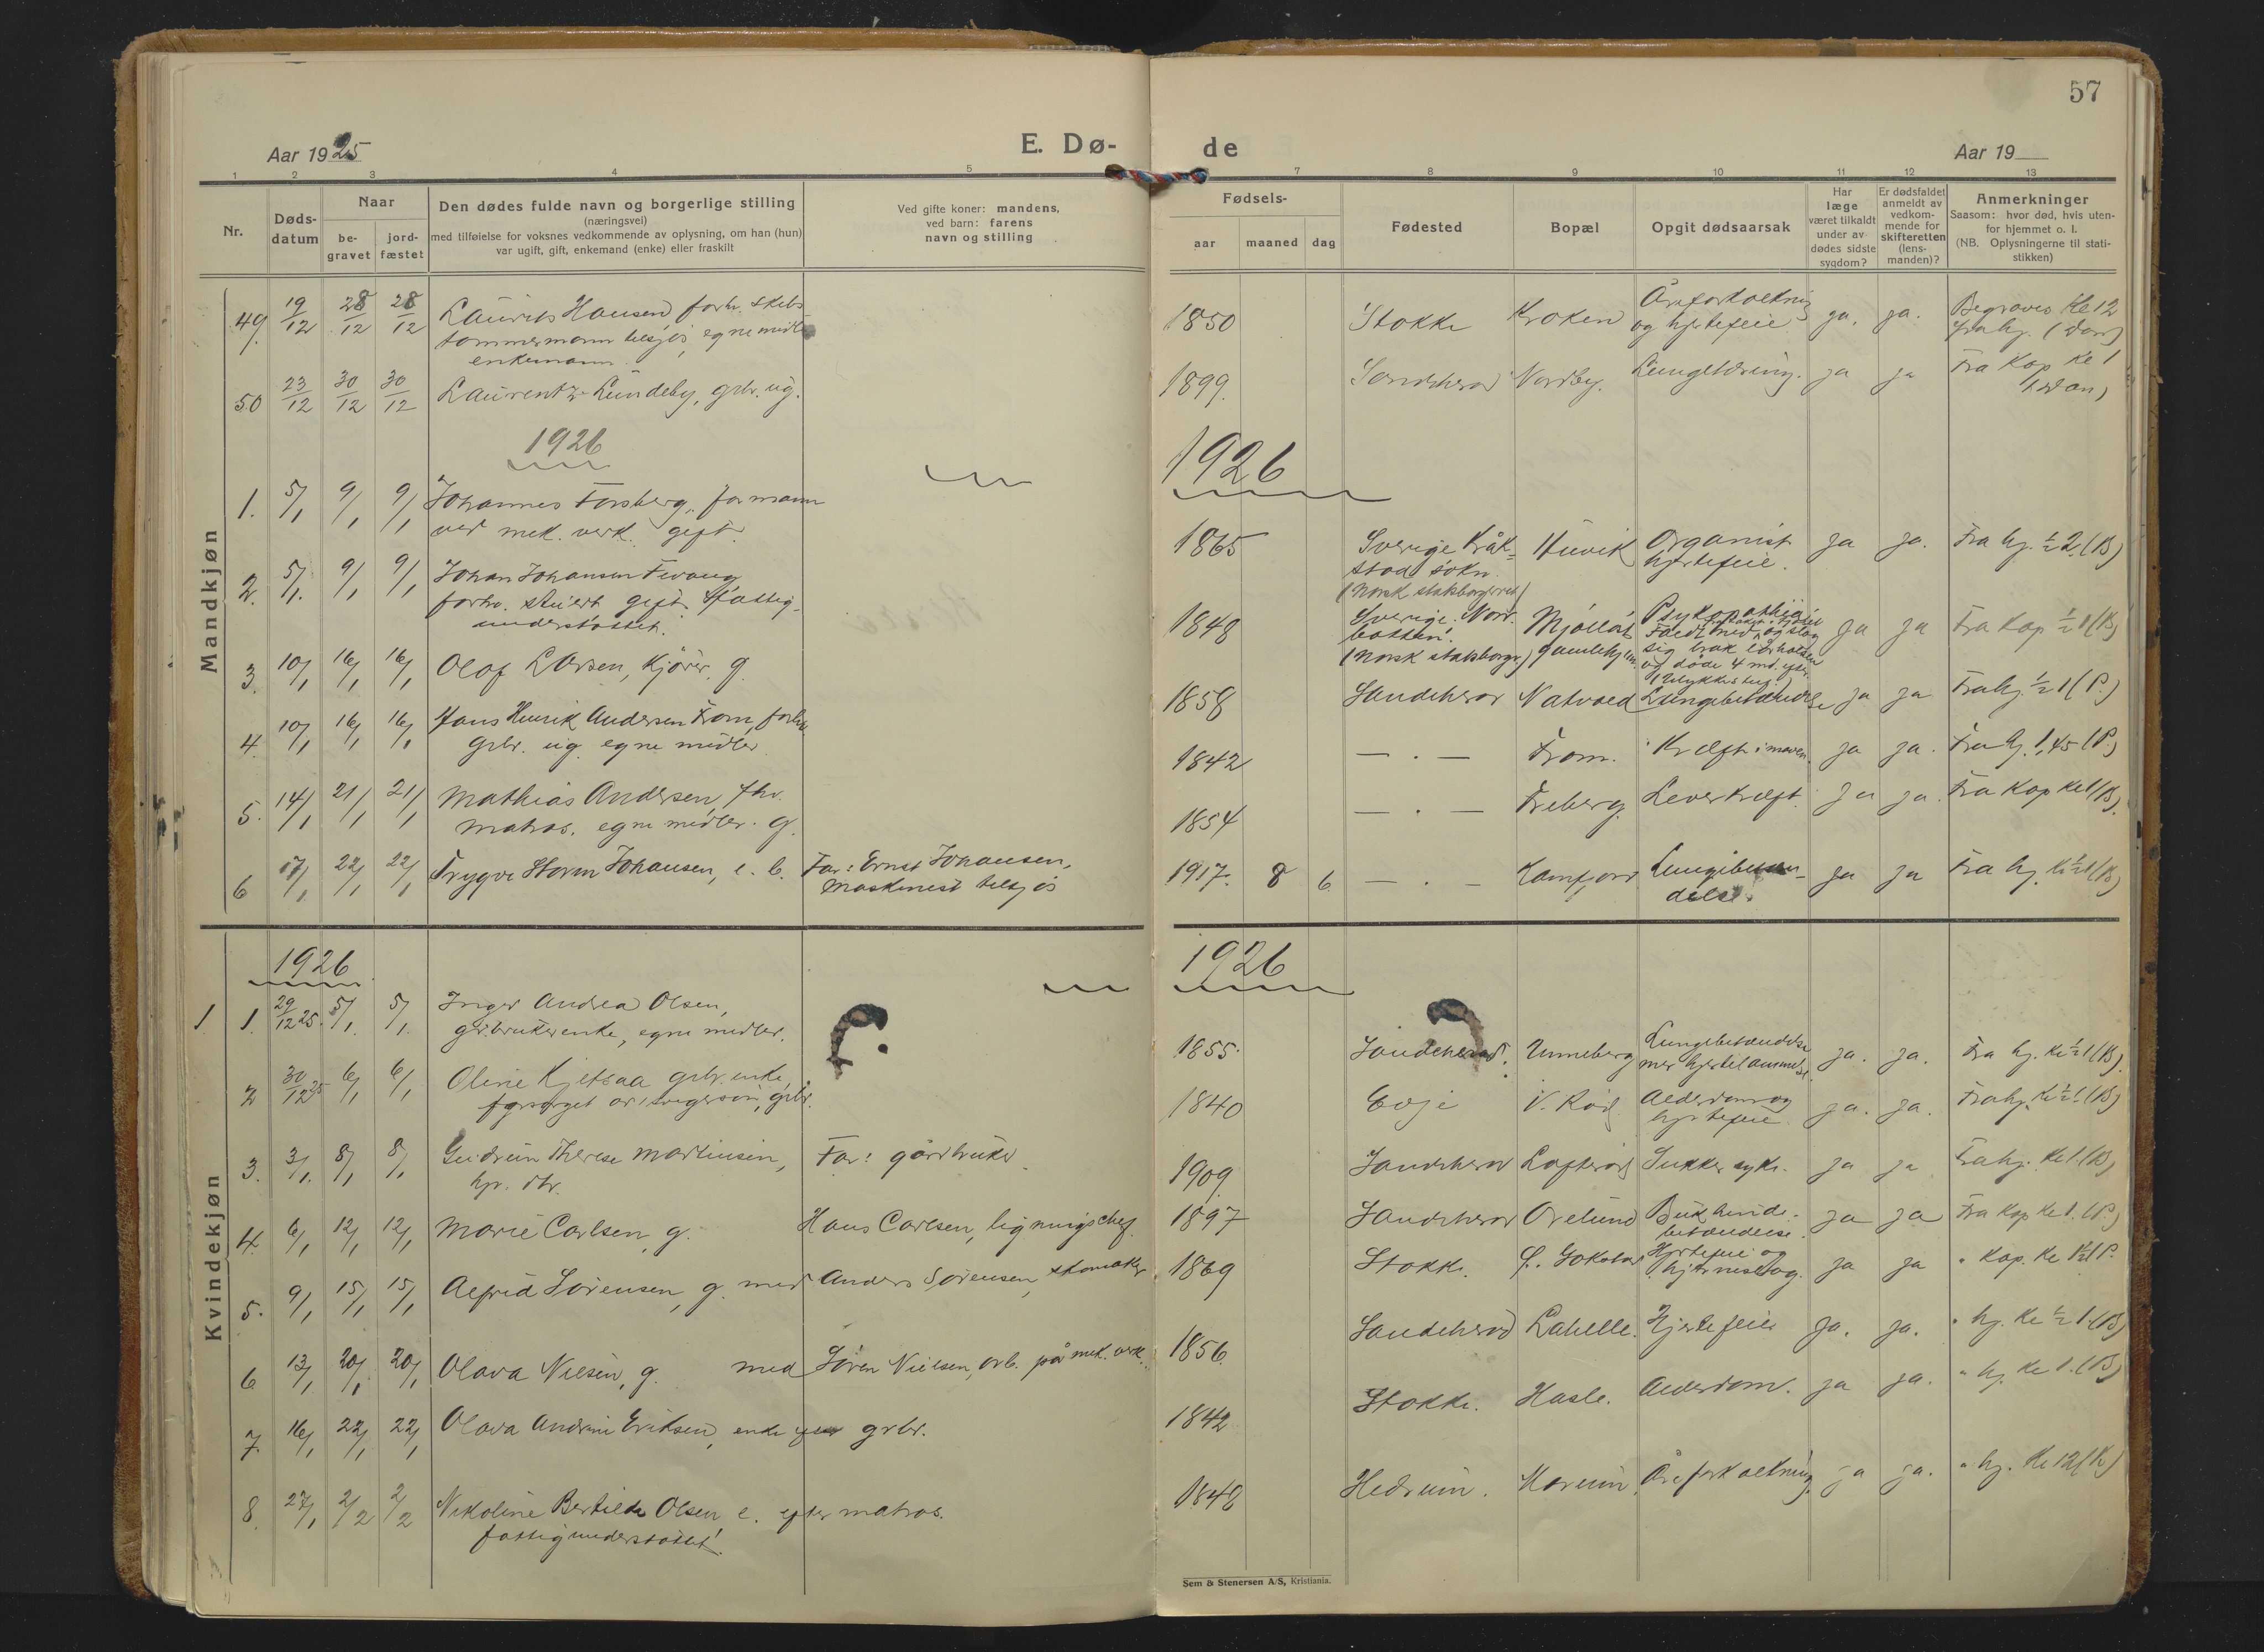 57
Aar 1925
E. Dø-
de
Aar 19
1 2 3 4 5 7 8 9 10 11 12 13
Nr.
Døds-
datum
Naar
be-
gravet
jord-
fæstet
Den dødes fulde navn og borgerlige stilling
(næringsvei)
med tilføielse for voksnes vedkommende av oplysning, om han (hun)
var ugift, gift, enkemand (enke) eller fraskilt
Ved gifte koner: mandens,
ved barn: farens
navn og stilling
Fødsels-
aar maaned dag
Fødested
Bopæl
Opgit dødsaarsak
Har
læge
været tilkaldt
under av-
dødes sidste
sygdom?
Er dødsfaldet
anmeldt av
vedkom-
mende for
skifteretten
(lens-
manden)?
Anmerkninger
Saasom: hvor død, hvis uten-
for hjemmet o. l.
(NB. Oplysningerne til stati-
stikken)
Mandkjøn
49. 19/12 28/12 28/12 Laurits Hansen forhv. skibs-
tømmermann tilsjøs, egne midler
enkemann
1850 Stokke Kroken Åreforkalkning
og hjertefeil ja. ja. Begraves Kl 12
fra hj. (Dan)
50 23/12 30/12 30/12 Laurentz Lundeby, grbr. ug.
1899. Sandeherad Nordby. Lungetæring. ja ja Fra Kap Kl 1
(Dan)
1926
1926
1. 5/1 9/1 9/1 Johannes Forsberg, formann
ved mek. verk. gift.
1865 Sverige Kråk-
stad sokn.
(Norsk statsborgerret)
Huvik Organisk
hjertefeil. ja ja. Fra hj. ½2. (B)
2. 5/1. 9/1 9/1 Johan Johansen Fevang,
forhv. stuert gift. Fattig-
understøttet.
1848 Sverige. Norr-
botten.
(Norsk statsborger) Mjøllåt
Gamlehjem Psykopathia
sig brak lårhalsen
og døde 4 md. efter
(Ulykkestilf.) ja ja Fra Kap ½1 (B)
3. 10/1 16/1 16/1 Olaf Larsen, Kjører, g.
1858 Sandeherad Natvaed Lungebetændelse ja ja Fra hj. ½1 (P.)
4. 10/1 16/1 16/1 Hans Henrik Andersen From, forhv.
grbr. ug. egne midler
1842 — . — From. Kræft i maven. ja ja. Fra hj. 1,45 (P.)
5. 14/1 21/1 21/1 Mathias Andersen, fhv.
matros. egne midler. g.
1854 — . — Freberg. Leverkræft. ja ja. Fra Kap Kl 1 (B).
6 17/1 22/1 22/1 Trygve Storm Johansen, e. b. Far: Ernst Johansen,
Maskinist tilsjøs
1917. 8 6 — . — Kamfjord Lungebetæn-
delse. ja ja Fra hj. Kl ½1 (B)
Kvindekjøn
1926
1926
1 1. 29/12 25. 5/1. 5/1. Inger Andrea Olsen,
gr.brukerenke, egne midler.
1855. Sandeherad. Unneberg Lungebetændelse
med hjertelammelse. ja. ja. Fra hj. Kl ½1 (B).
2 30/12 25 6/1 6/1 Oline Kjetsaa grbr. enke,
forsørget av svigersøn, grbr.
1840 Evje V. Rød Alderdom og
hjertefeil ja. ja. Fra hj. Kl ½1 (B)
3. 3/1. 8/1 8/1. Gudrun Therese Martinsen,
hj. dtr.
Far: gårdbruker
1909. Sandeherad Lofterød Sukkersyke. ja ja Fra hj. Kl 1. (B)
4. 6/1 12/1 12/1 Marie Carlsen, g. Hans Carlsen, ligningschef.
1897 Sandeherad Ørelund Bukhinde-
betændelse. ja ja Fra Kap Kl 1. (P.)
5. 9/1 15/1 15/1 Alfrid Sørensen, g. med Anders Sørensen, skomaker
1869 Stokke. Hjertefeil og
hjerneslag. ja ja " Kap. Kl ½1 P.
6 13/1. 20/1 20/1 Olava Nielsen, g. med Søren Nielsen, arb. på mek. verk.
1856. Sandeherad Lahelle. Hjertefeil ja. ja. " hj. Kl ½1 (B)
7. 16/1 22/1 22/1 Olava Andrine Eriksen, enke efter grbr.
1842 Stokke. Hasle. Alderdom. ja ja. " hj. Kl 1. (B)
8. 27/1 2/2 2/2 Nikoline Bertilde Olsen e. efter matros.
fattigunderstøttet.
1848 Hedrum. Korum Åreforkalkning. ja ja. " hj. Kl 12 (K)
Sem & Stenersen A/S, Kristiania.